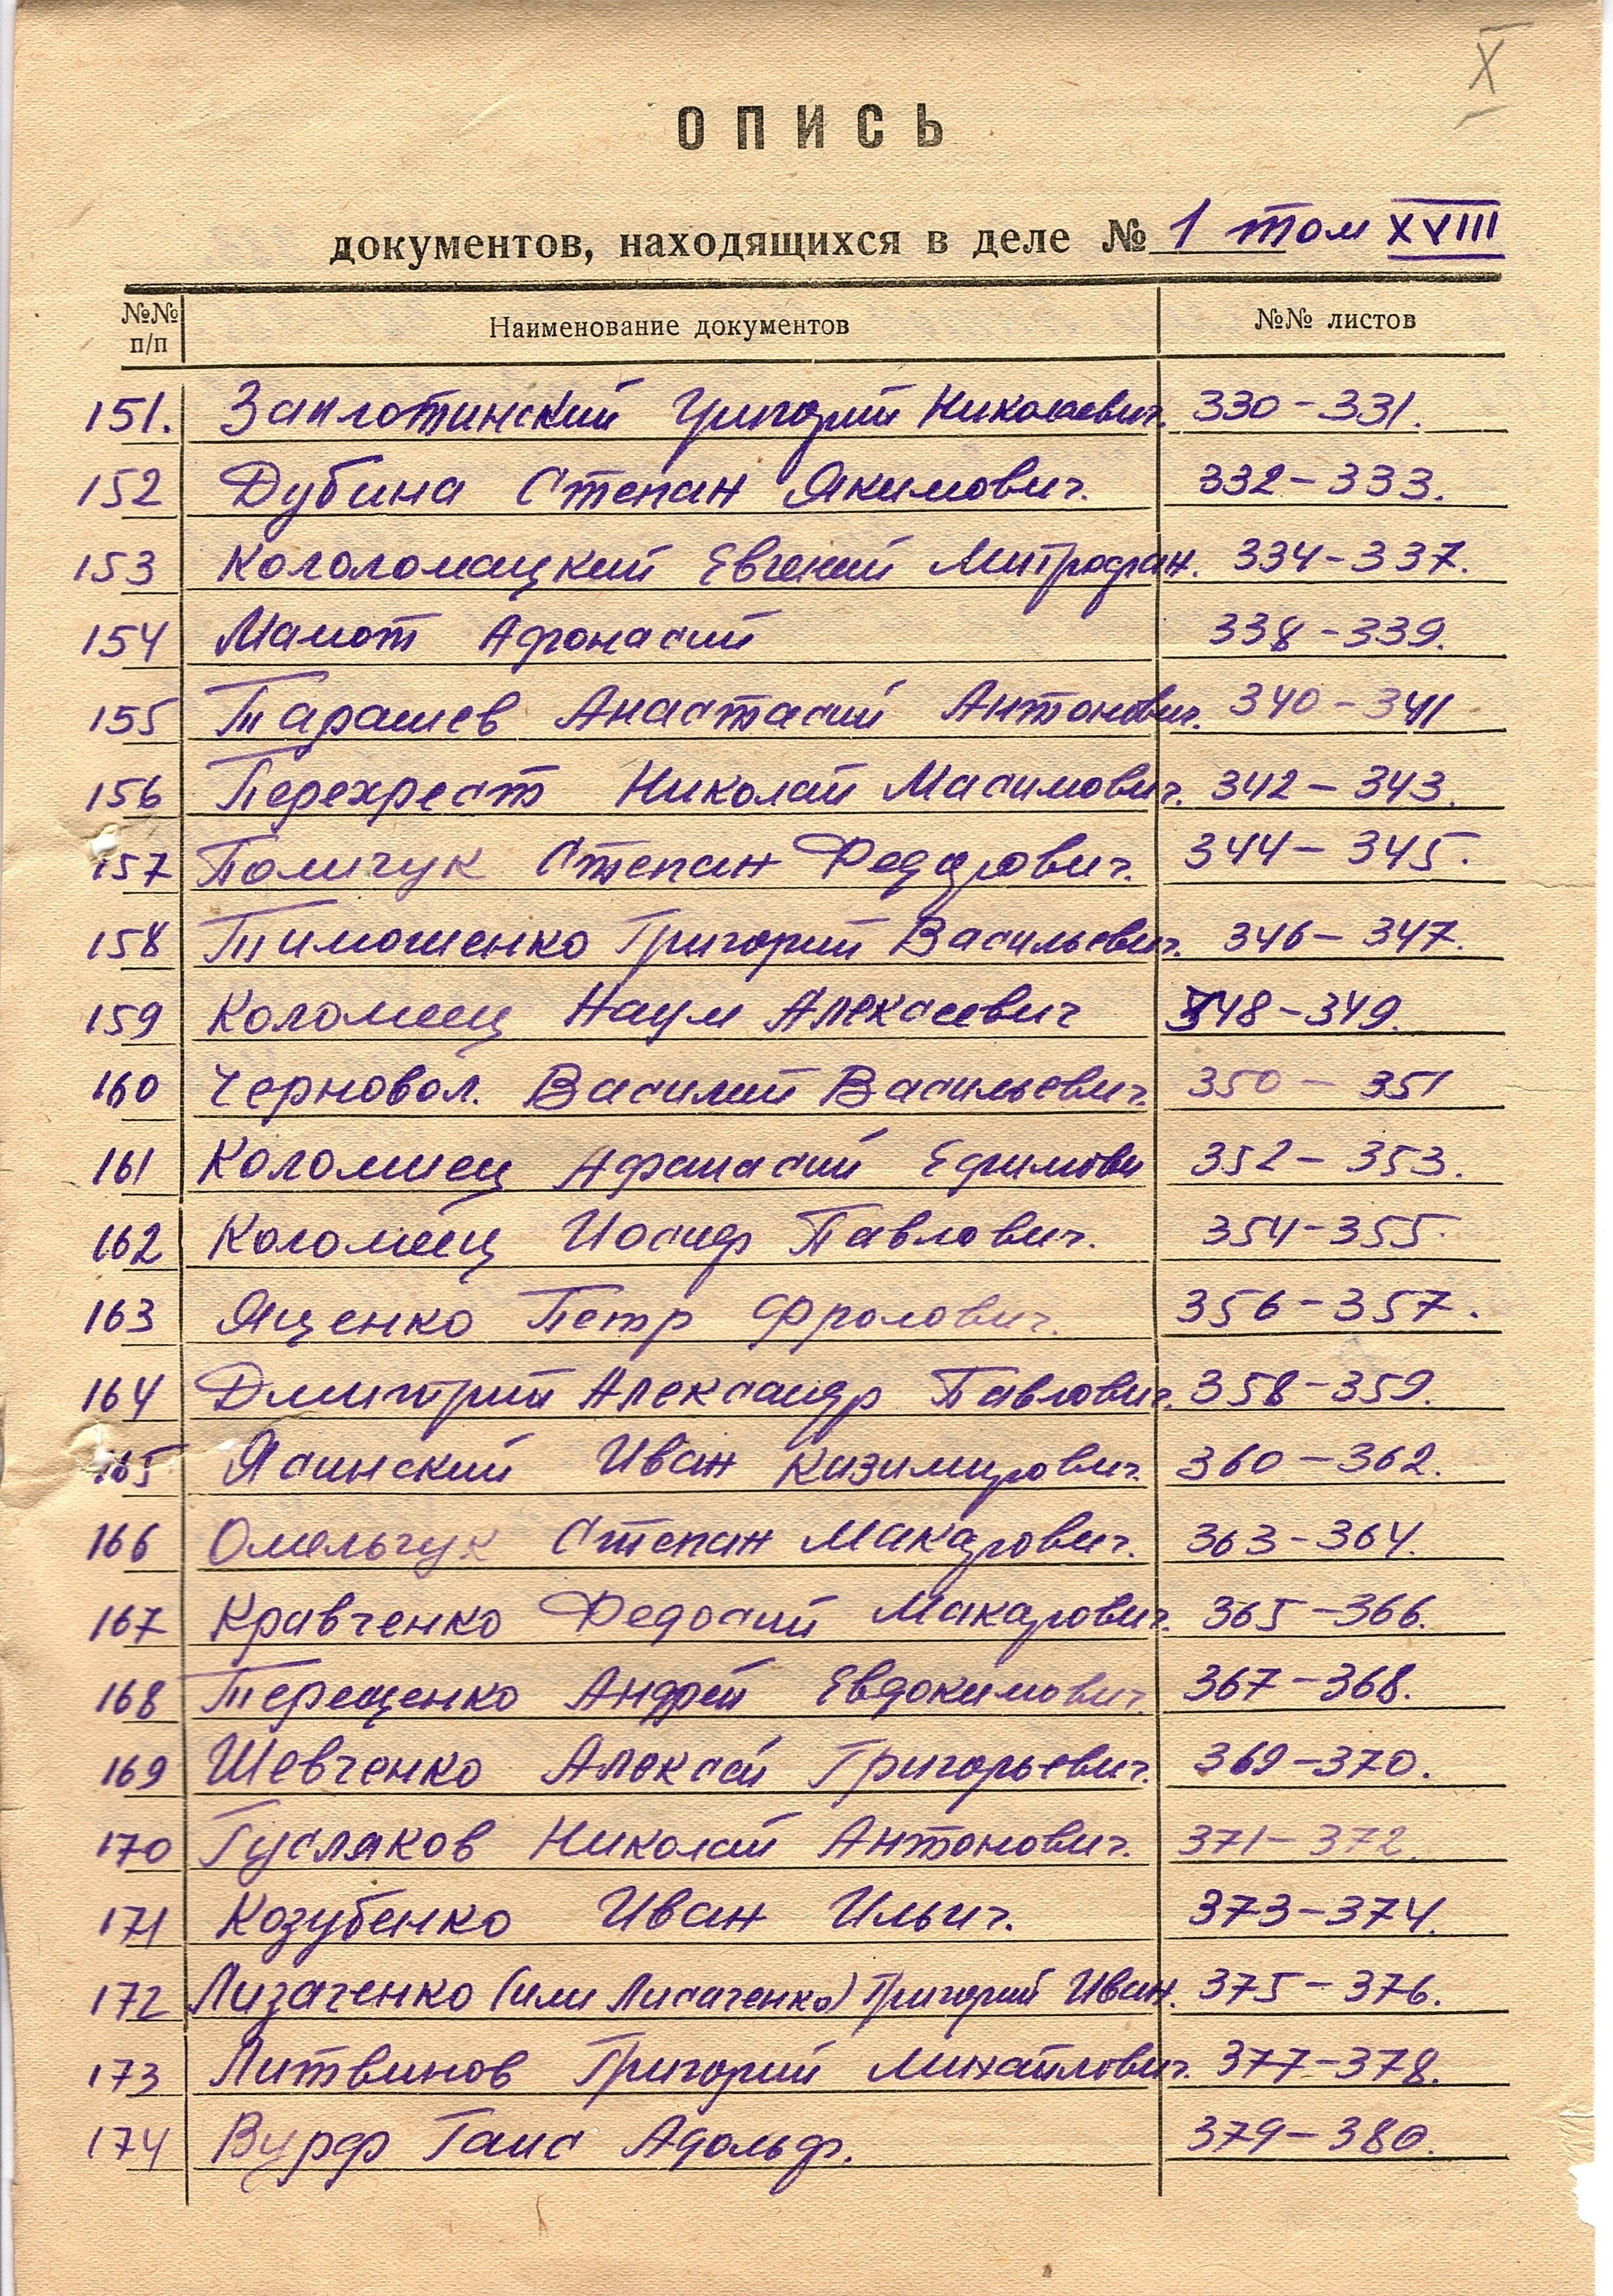 X
ОПИСЬ
документов, находящихся в деле № 1 том XVIII
№№ п/п Наименование документов №№ листов
151. Заплотинский Григорий Николаевич. 330-331.
152 Дубина Степан Якимович. 332-333.
153 Кололомацкий Евгений Митрофан. 334-337.
154 Мамот Афонасий 338-339.
155 Тарашев Анастасий Антонович. 340-341
156 Перехрест Николай Масимович. 342-343.
157 Полищук Степан Федорович. 344-345.
158 Тимошенко Григорий Васильевич. 346-347.
159 Коломеец Наум Алексеевич 348-349.
160 Черновол. Василий Васильевич. 350-351
161 Коломиец Афанасий Ефимови 352-353.
162 Коломиец Иосиф Павлович. 354-355.
163 Яценко Петр Фролович. 356-357.
164 Дмитрий Александр Павлович. 358-359.
165 Ясинский Иван Казимирович. 360-362.
166 Омельчук Степан Макарович. 363-364.
167 Кравченко Федосий Макарович. 365-366.
168 Терещенко Андрей Евдокимович. 367-368.
169 Шевченко Алексей Григорьевич. 369-370.
170 Гусляков Николай Антонович. 371-372.
171 Козубенко Иван Ильич. 373-374.
172 Лизаченко (или Лисаченко) Григорий Иван. 375-376.
173 Литвинов Григорий Михайлович. 377-378.
174 Вурф Ганс Адольф. 379-380.